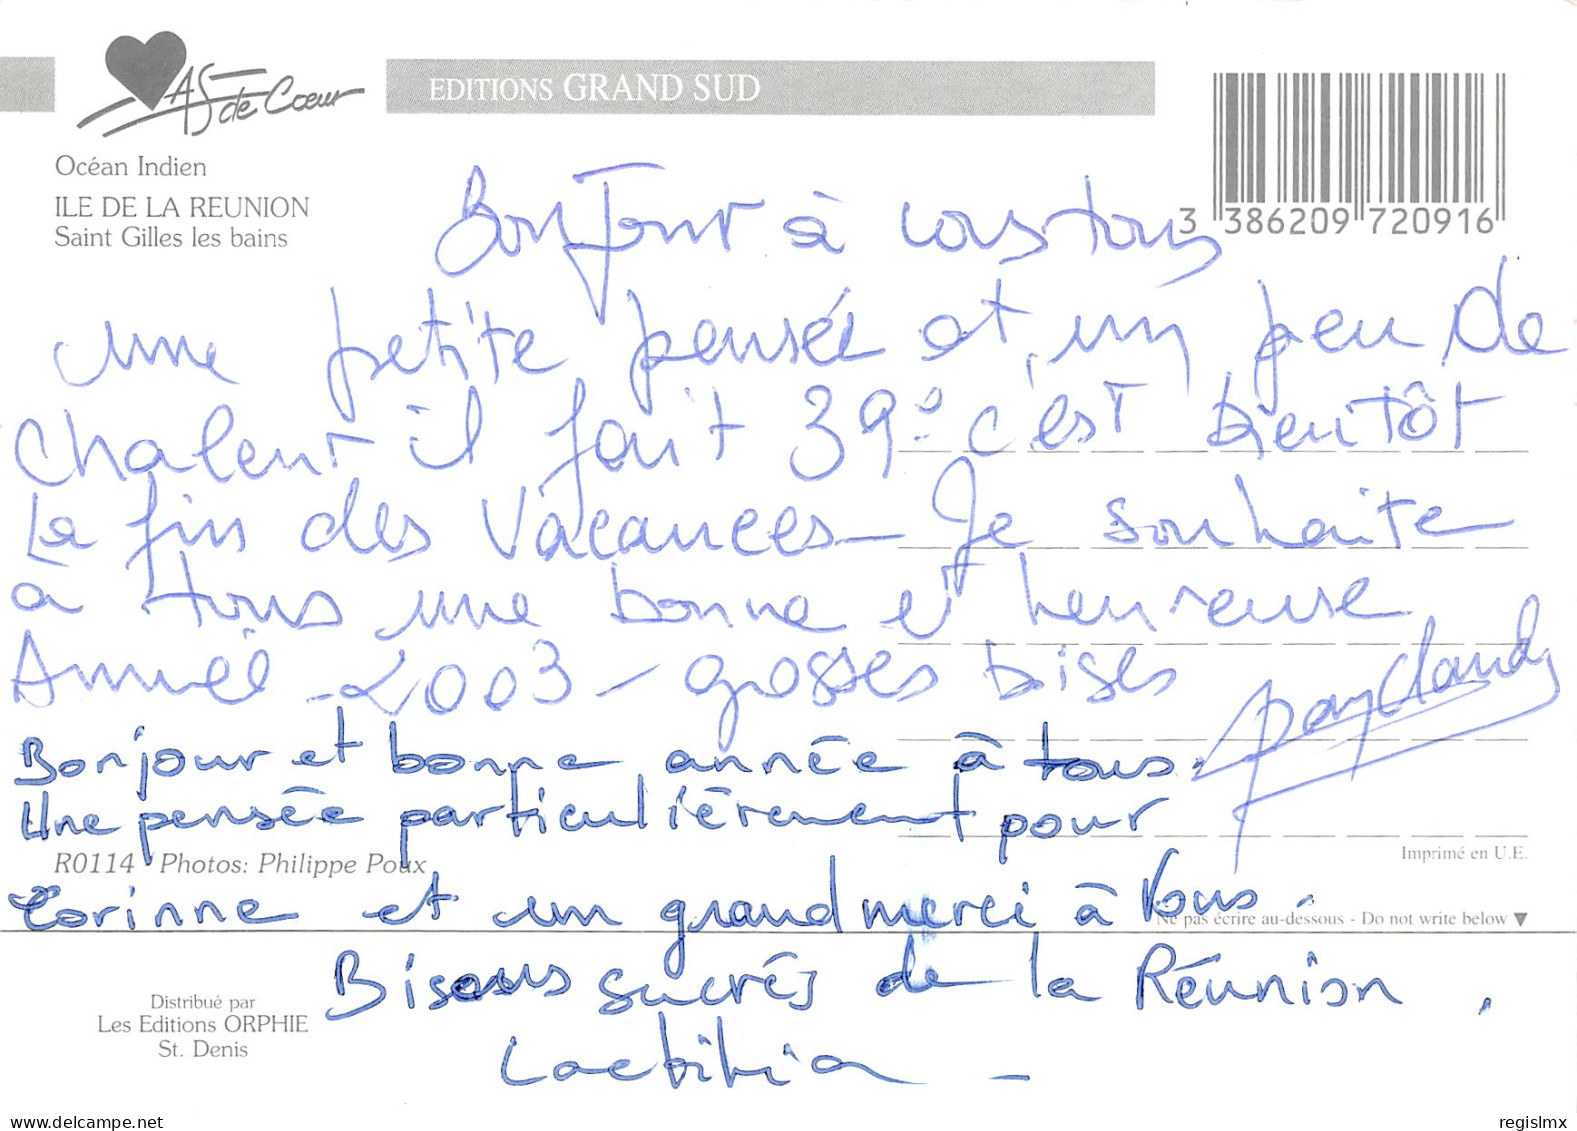 As de Cœur
EDITIONS GRAND SUD
Océan Indien
ILE DE LA REUNION
Saint Gilles les bains
3 386209 720916
BonJour à vous tous
une petite pensée et un peu de
chaleur il fait 39° c'est bientôt
La fin des Vacances - Je souhaite
à tous une bonne et heureuse
Année - 2003 - gosses bises
Bonjour et bonne année à tous.
Une pensée particulièrement pour
R0114 Photos: Philippe Poux
Imprimé en U.E.
Corinne et un grand merci à Vous.
Ne pas écrire au-dessous - Do not write below ▼
Bisous sucrés de la Réunion.
Distribué par
Les Editions ORPHIE
St. Denis
Laetitia -
www.delcampe.net
regislmx